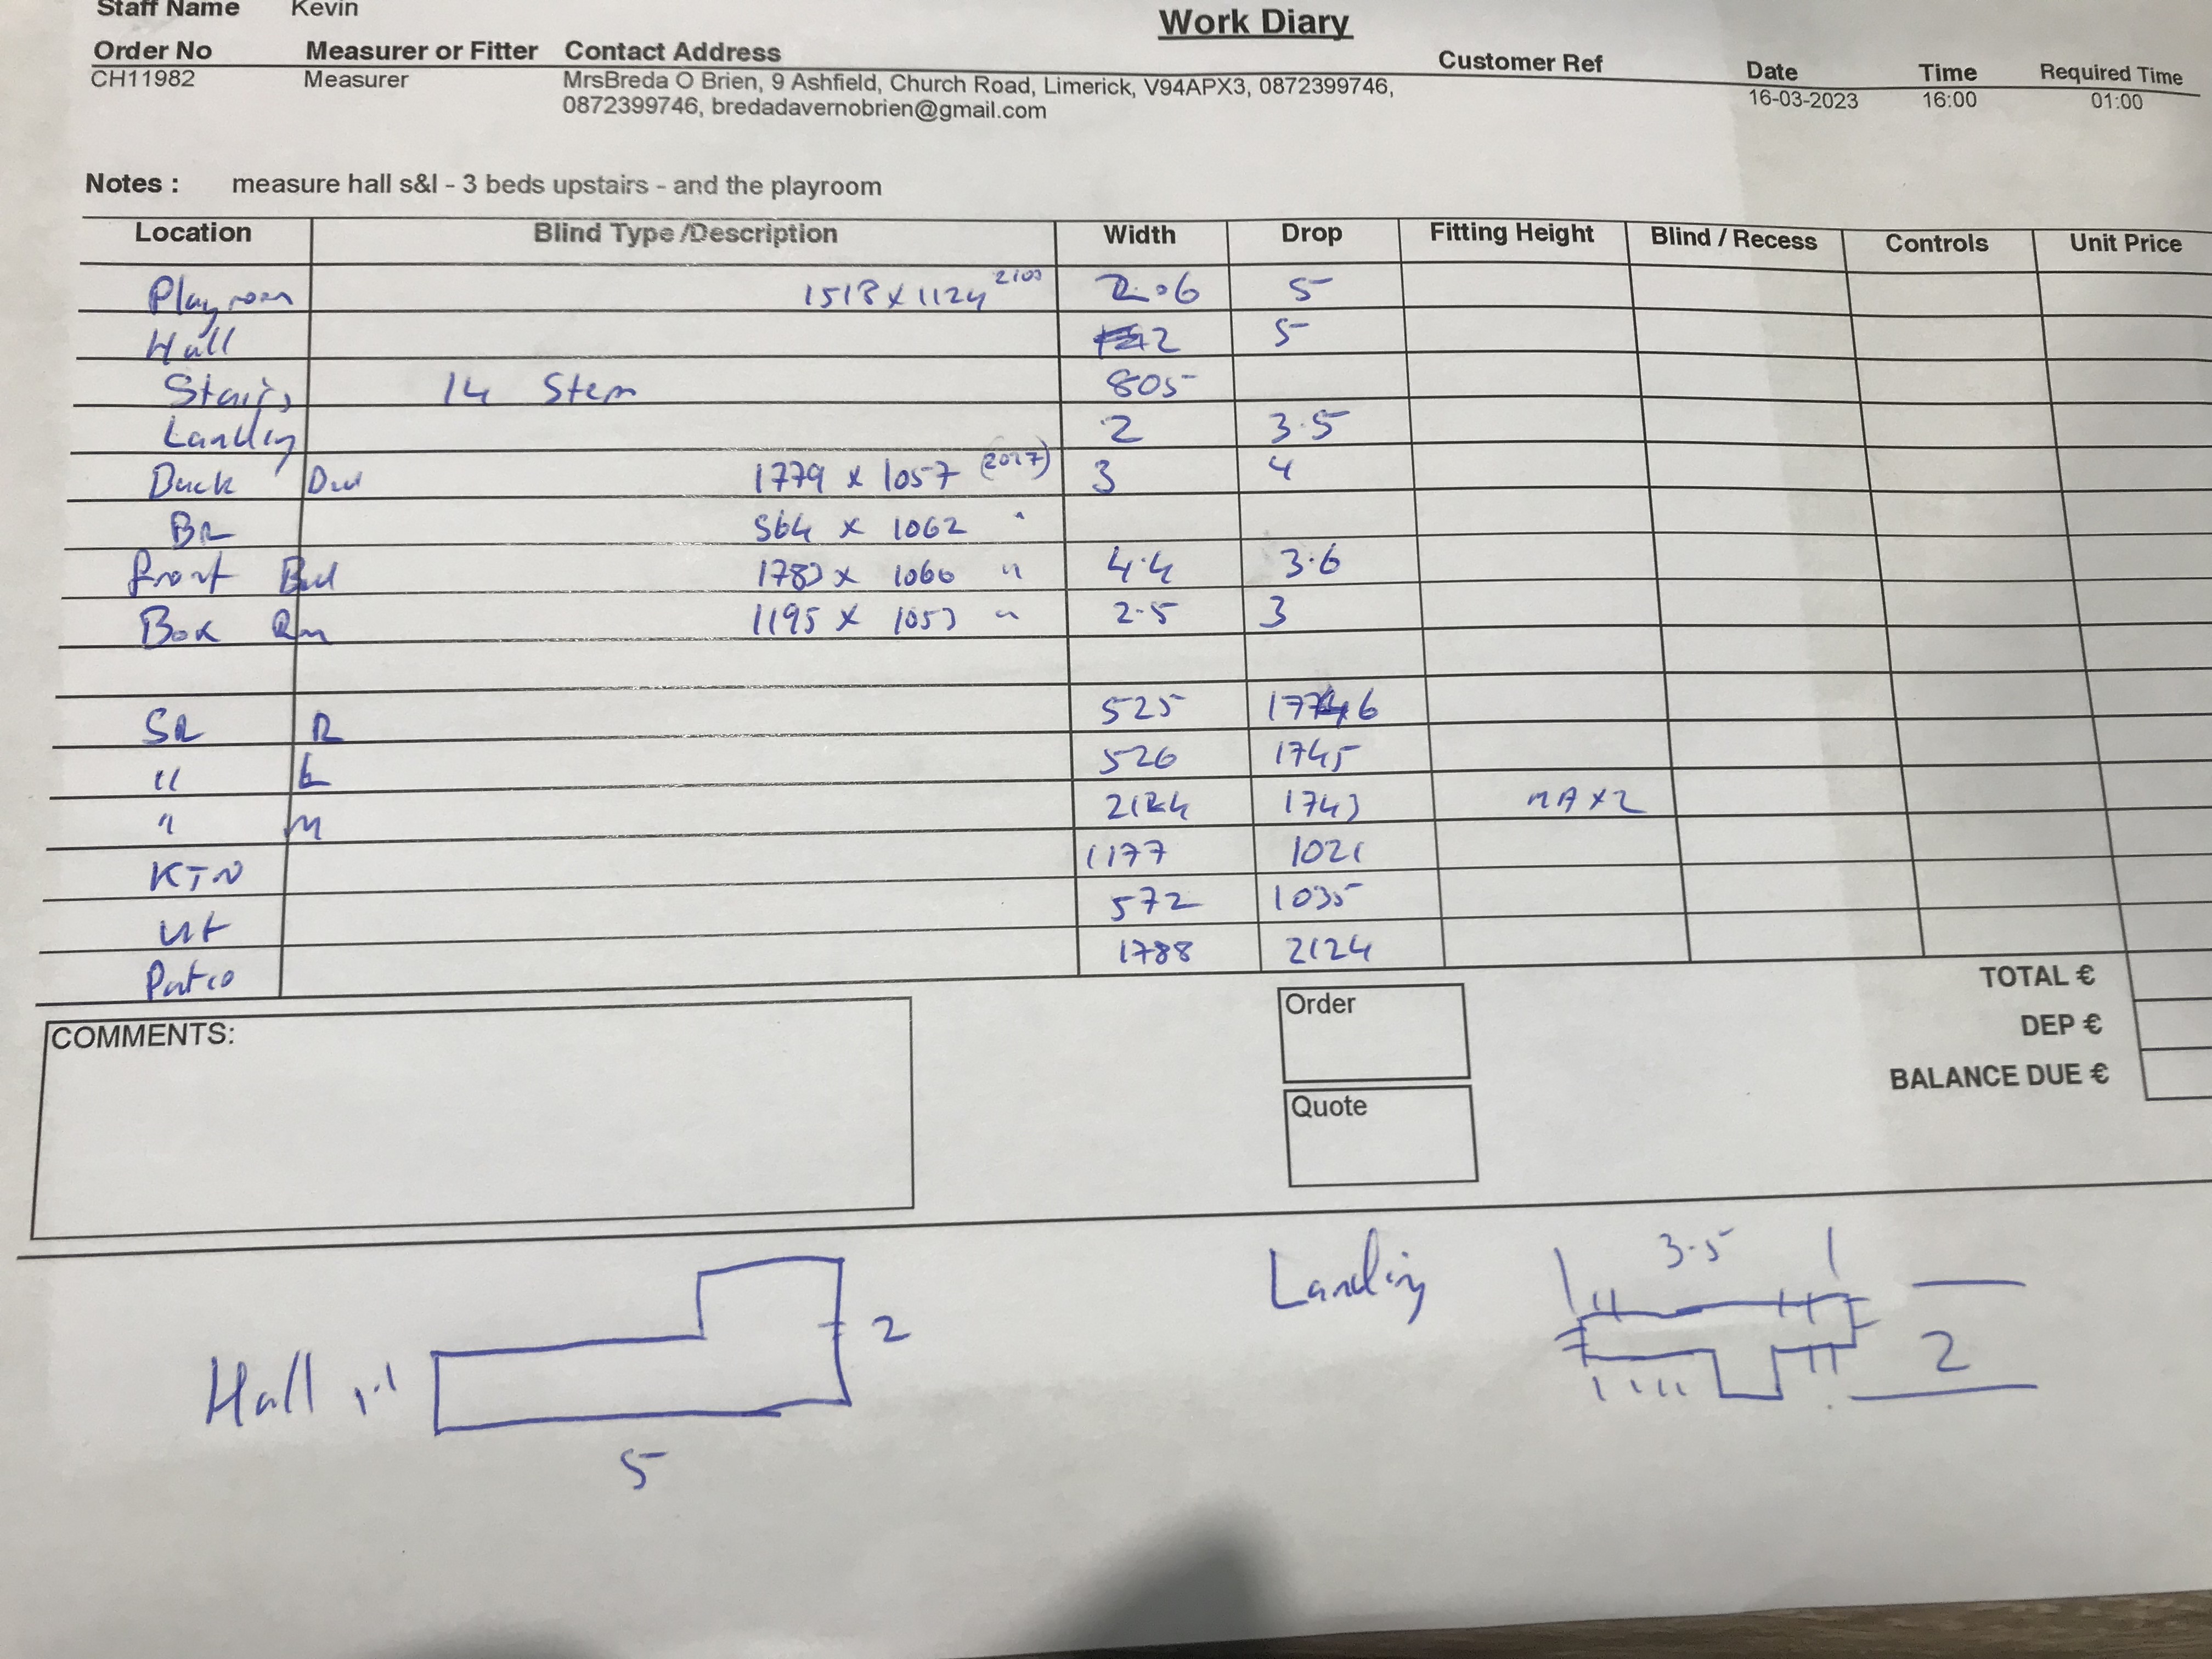 Staff Name Kevin
Work Diary
Order No Measurer or Fitter Contact Address Customer Ref Date Time Required Time
CH11982 Measurer MrsBreda O Brien, 9 Ashfield, Church Road, Limerick, V94APX3, 0872399746, 16-03-2023 16:00 01:00
0872399746, bredadavernobrien@gmail.com
Notes : measure hall s&l - 3 beds upstairs - and the playroom
Location Blind Type /Description Width Drop Fitting Height Blind / Recess Controls Unit Price
Playroom 1518 x 1124 2.6 5
Hall 2 5
Stairs 14 Steps 805
Landing 2 3.5
1779 x 1057 3 4
BR 564 x 1062 "
Front Bed 1783 x 1060 " 4.4 3.6
Box Rm 1195 x 1053 " 2.5 3
SR R 525
" L 526 1745
" M 1743 MAX2
KTN 1177 1021
Ut 572 1035
Patio 1788 2124
TOTAL €
DEP €
BALANCE DUE €
COMMENTS:
Order
Quote
Landing 3.5
2
Hall 1.1 2
5